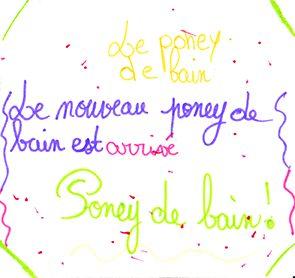 Le poney
de bain
Le nouveau poney de
bain est arrivé
Soney de bain !